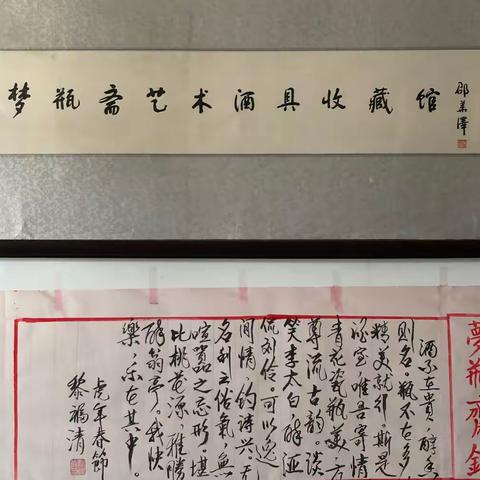 梦瓶斋艺术酒具收藏馆
邵华泽
夢瓶齋銘
酒不在貴，醇香
则名。瓶不在多，
精美就行。斯是
室唯吾寄情
青花瓷瓶美，方
尊流古韵。谈
笑李太白，醉
侃刘伶。可以逸
闲情，钓诗兴。无
名利之俗氣，無
喧嚣之忘形。堪
比桃花源，雅勝
醉翁亭。我快
樂，乐在其中。
虎年春節
黎福清